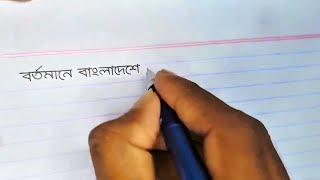 বর্তমানে বাংলাদেশে